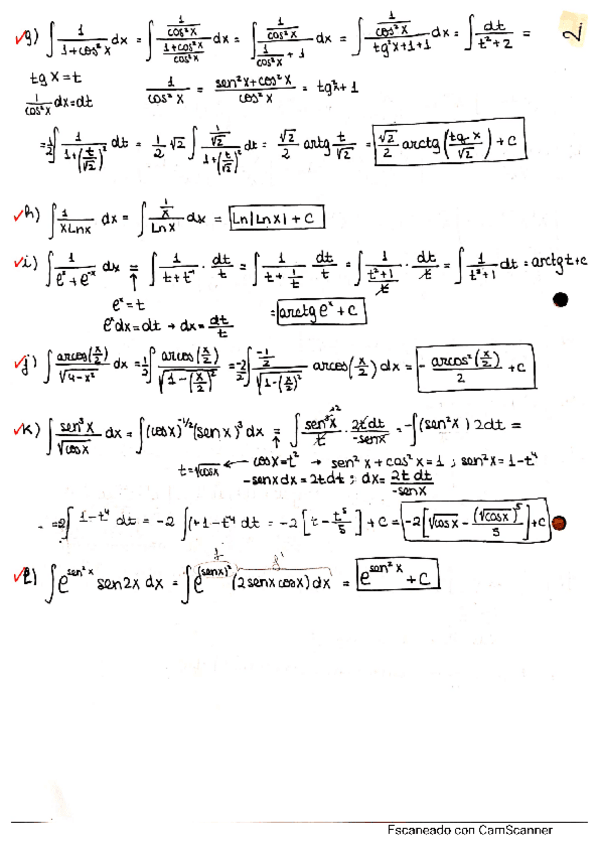 2.
✓g) ∫ 1/(1+cos²x) dx = ∫ (1/cos²x)/((1+cos²x)/cos²x) dx = ∫ (1/cos²x)/(1/cos²x + 1) dx = ∫ (1/cos²x)/(tg²x+1+1) dx = ∫ dt/(t²+2) =
tg x = t
1/cos²x dx = dt
1/cos²x = (sen²x+cos²x)/cos²x = tg²x+1
= 1/2 ∫ 1/(1+(t/√2)²) dt = 1/2 √2 ∫ (1/√2)/(1+(t/√2)²) dt = √2/2 artg t/√2 = √2/2 arctg (tg x/√2) + C
✓h) ∫ 1/(x Ln x) dx = ∫ (1/x)/(Ln x) dx = Ln|Ln x| + C
✓i) ∫ 1/(eˣ+e⁻ˣ) dx = ∫ 1/(t+t⁻¹) · dt/t = ∫ 1/(t+1/t) dt/t = ∫ 1/((t²+1)/t) · dt/t = ∫ 1/(t²+1) dt = arctg t + c
eˣ = t
= arctg eˣ + C
eˣ dx = dt → dx = dt/t
✓j) ∫ arcos(x/2)/√(4-x²) dx = 1/2 ∫ arcos(x/2)/√(1-(x/2)²) = -2/2 ∫ (-1/2)/√(1-(x/2)²) arcos(x/2) dx = - arcos²(x/2)/2 + C
✓k) ∫ sen³x/√cosx dx = ∫ (cosx)^(-1/2) (senx)³ dx = ∫ sen³x/t · 2t dt/-senx = -∫ (sen²x) 2dt =
t = √cosx ← cosx = t² → sen²x + cos²x = 1 ; sen²x = 1-t⁴
-senx dx = 2t dt ; dx = 2t dt/-senx
= -2 ∫ 1-t⁴ dt = -2 ∫ (+1-t⁴ dt = -2 [t - t⁵/5] + C = -2 [√cosx - (√cosx)⁵/5] + C
✓l) ∫ e^(sen²x) sen2x dx = ∫ e^((senx)²) (2senx cosx) dx = e^(sen²x) + C
Escaneado con CamScanner